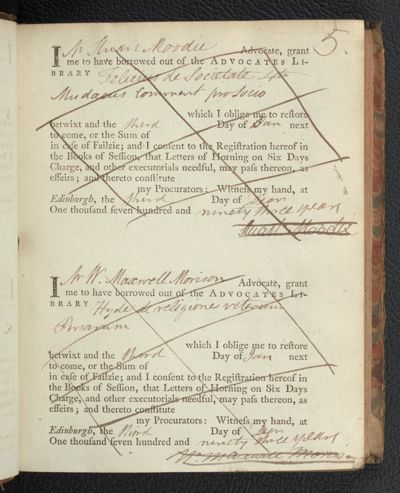 5.
I Mr Stuart Moodie Advocate, grant
me to have borrowed out of the ADVOCATES LI-
BRARY Felicius de Societate 4to
comment pro Socio
which I oblige me to reſtore
betwixt and the third Day of Jan next
to come, or the Sum of
in caſe of Failzie; and I conſent to the Regiſtration hereof in
the Books of Seſſion, that Letters of Horning on Six Days
Charge, and other executorials needful, may paſs thereon, as
effeirs; and thereto conſtitute
my Procurators: Witneſs my hand, at
Edinburgh, the third Day of Jan
One thouſand ſeven hundred and ninety three years
Stuart Moodie
I Mr W. Maxwell Morison Advocate, grant
me to have borrowed out of the ADVOCATES LI-
BRARY Hyde de religione veterum
Persarum
which I oblige me to reſtore
betwixt and the third Day of Jan next
to come, or the Sum of
in caſe of Failzie; and I conſent to the Regiſtration hereof in
the Books of Seſſion, that Letters of Horning on Six Days
Charge, and other executorials needful, may paſs thereon, as
effeirs; and thereto conſtitute
my Procurators: Witneſs my hand, at
Edinburgh, the third Day of Jan
One thouſand ſeven hundred and ninety three years
Wm Maxwell Morison